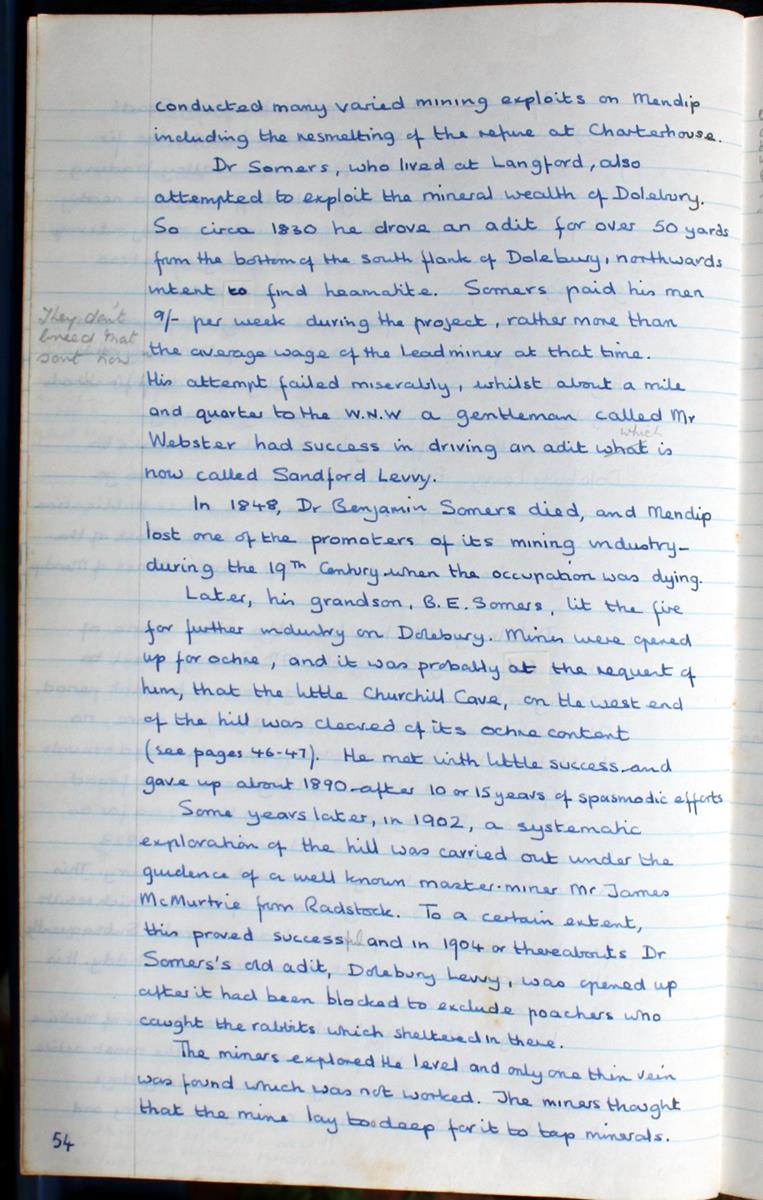 conducted many varied mining exploits on Mendip
including the resmelting of the refuse at Charterhouse.
Dr Somers, who lived at Langford, also
attempted to exploit the mineral wealth of Dolebury.
So circa 1830 he drove an adit for over 50 yards
from the bottom of the south flank of Dolebury, northwards
intent to find heamatite. Somers paid his men
They don't
breed that
sort now
9/- per week during the project, rather more than
the average wage of the leadminer at that time.
His attempt failed miserably, whilst about a mile
and quarter to the W.N.W a gentleman called Mr
which
Webster had success in driving an adit what is
now called Sandford Levvy.
In 1848, Dr Benjamin Somers died, and Mendip
lost one of the promoters of its mining industry-
during the 19TH Century-when the occupation was dying.
Later, his grandson, B.E. Somers, lit the fire
for further industry on Dolebury. Mines were opened
up for ochre, and it was probably at the request of
him, that the little Churchill Cave, on the west end
of the hill was cleared of its ochre content
(see pages 46-47). He met with little success-and
gave up about 1890-after 10 or 15 years of spasmodic efforts
Some years later, in 1902, a systematic
exploration of the hill was carried out under the
guidence of a well known master-miner Mr James
McMurtrie from Radstock. To a certain extent,
this proved successful and in 1904 or thereabouts Dr
Somers's old adit, Dolebury Levvy, was opened up
after it had been blocked to exclude poachers who
caught the rabbits which sheltered in there.
The miners explored the level and only one thin vein
was found which was not worked. The miners thought
that the mine lay to deep for it to tap minerals.
54